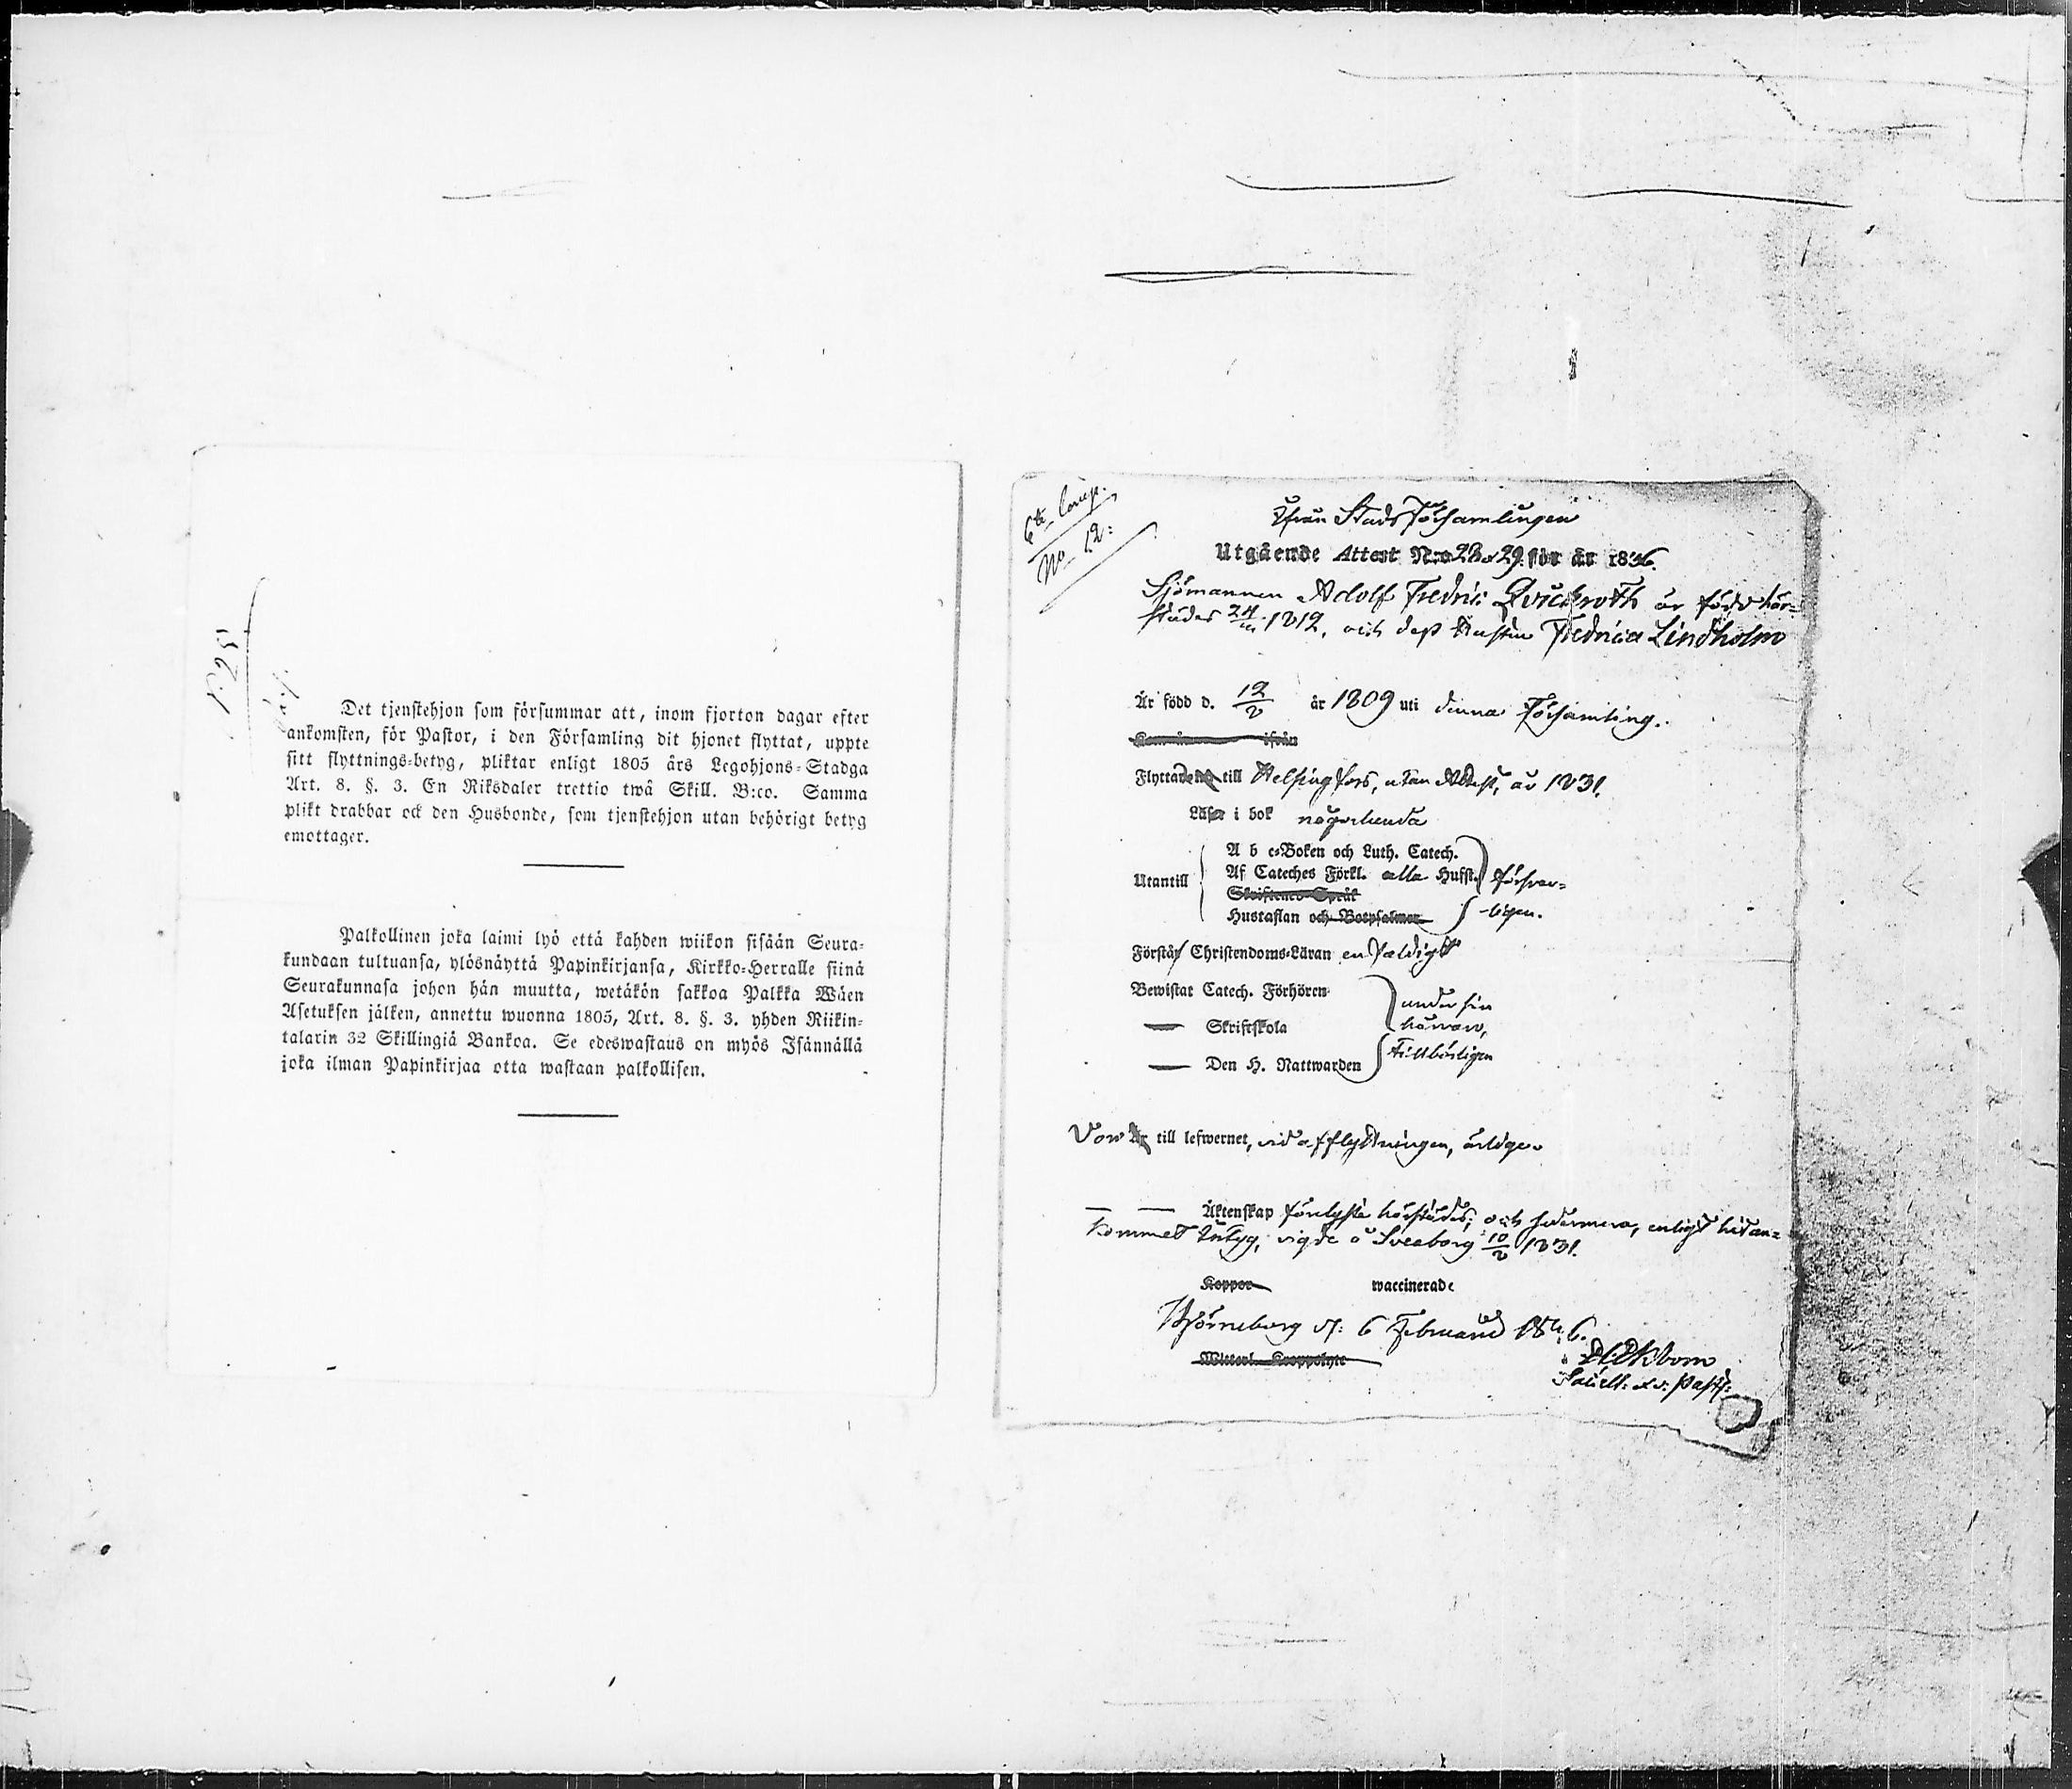 P. 25
Det tjenstehjon som försummar att, inom fjorton dagar efter
ankomsten, för Pastor, i den Församling dit hjonet flyttat, uppte
sitt flyttnings-betyg, pliktar enligt 1805 års Legohjons-Stadga
Art. 8. §. 3. En Riksdaler trettio twå Skill. B:co. Samma
plikt drabbar ock den Husbonde, som tjenstehjon utan behörigt betyg
emottager.
Palkollinen joka laimi lyö että kahden wiikon sisään Seura-
kundaan tultuansa, ylösnäyttä Papinkirjansa, Kirkko-Herralle siinä
Seurakunnasa johon hän muutta, wetäkön sakkoa Palkka Wäen
Asetuksen jälken, annettu wuonna 1805, Art. 8. §. 3. yhden Riikin-
talarin 32 Skillingiä Bankoa. Se edeswastaus on myös Isännällä
joka ilman Papinkirjaa otta wastaan palkollisen.
6te Comp.
No 12:
Ifrån Stads Församlingen
Utgående Attest N:o 28 o 29 för år 1846.
Sjömannen Adolf Fredric Qvickroth är född här-
städes 24/ 1812, och dess Hustru Fredrica Lindholm
Är född d. 12/2 år 1809 uti denna Församling.
Kom år ifrån
Flyttade till Helsingfors, utan Attest, år 1831.
Läser i bok någorlunda
Utantill
A b c-Boken och Luth. Catech.
Af Cateches Förkl. alla Hufst.
Skriftenes Språk
Hustaflan och Botpsalmer
försvar-
ligen.
Förstår Christendoms-Läran enfaldigt
Bewistat Catech. Förhören
— Skriftskola
— Den H. Nattwarden
under sin
härvaro,
tillbörligen
Voro Är till lefwernet, vid afflyttningen, ärlige.
— — Äktenskap förelyste härstädes; och sedermera, enligt hitan-
kommet Intyg, vigde å Sveaborg 10/2 1831.
Koppor waccinerade
Björneborg d: 6 Februarii 1846.
Witterl. Kroppslyte
Ekbom